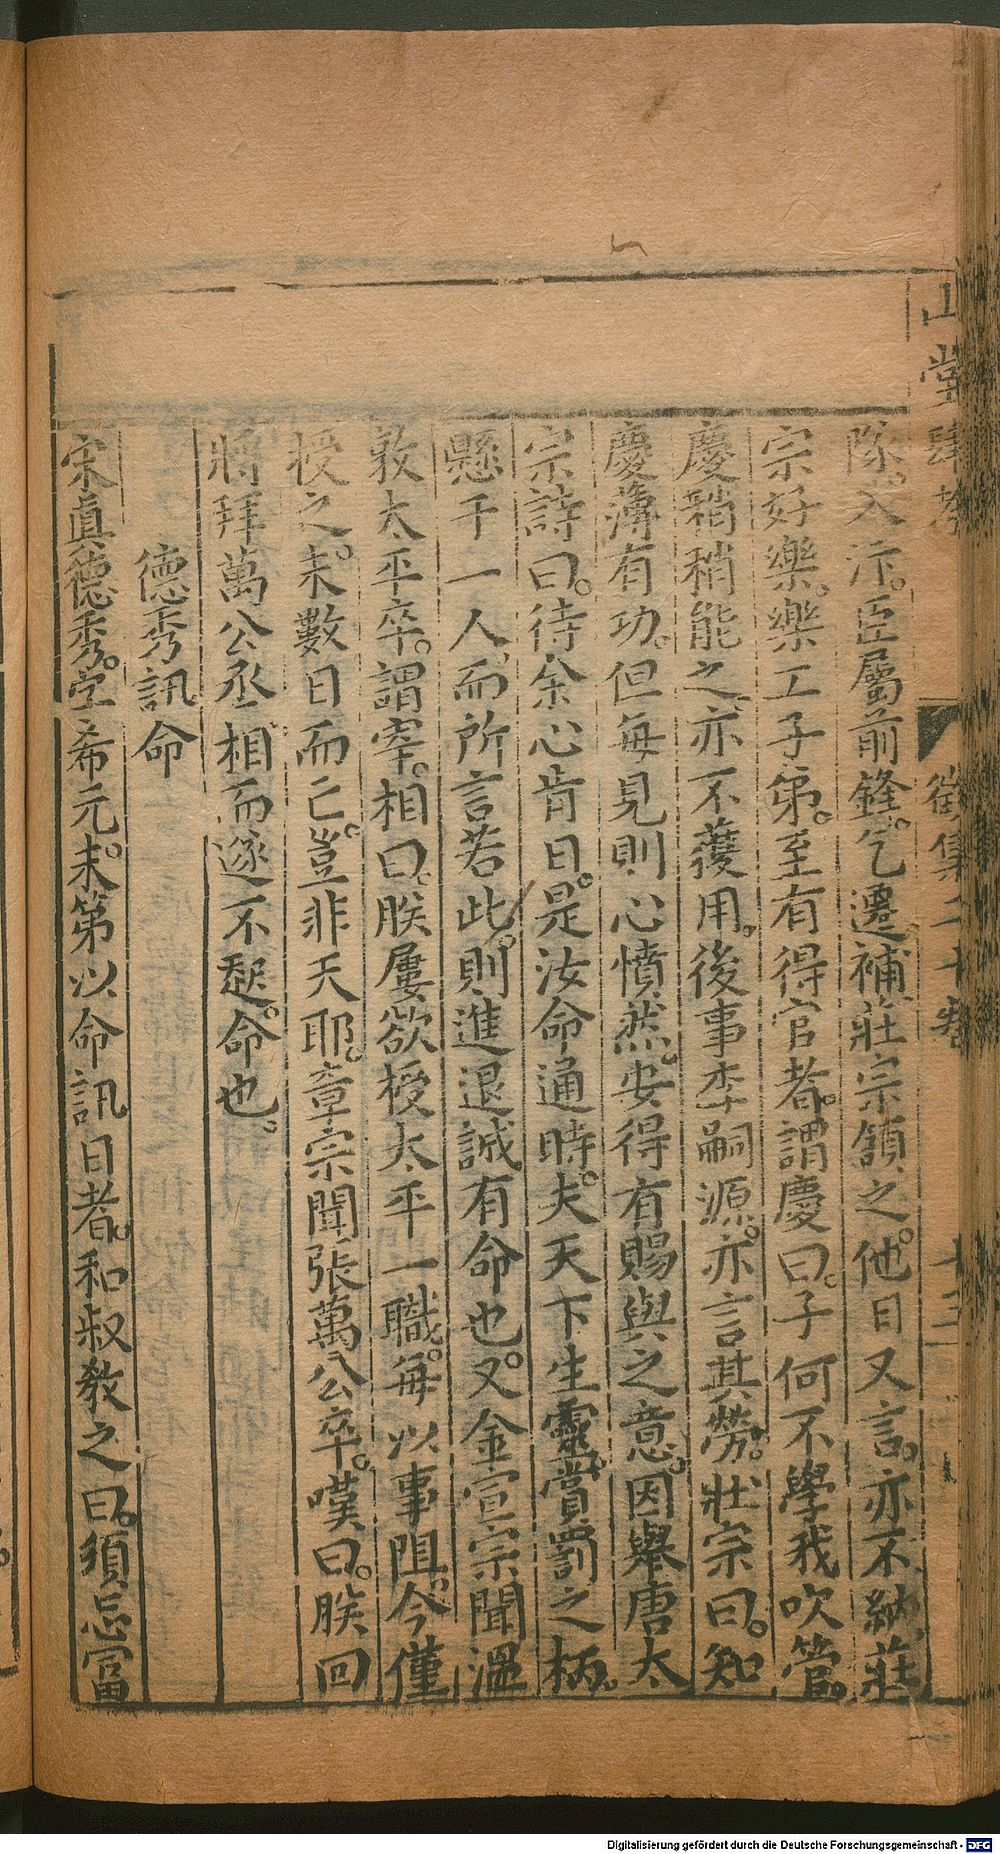 山堂肆考 徵集二十卷 十三
隊入汴臣屬前鋒乞遷補莊宗領之他日又言亦不納莊
宗好樂樂工子弟至有得官者謂慶曰子何不學我吹管
慶稍稍能之亦不獲用後事李嗣源亦言其勞壯宗曰知
慶薄有功但每見則心憤然安得有賜與之意因舉唐太
宗詩曰待余心肯日是汝命通時夫天下生靈賞罰之柄
懸于一人而所言若此則進退誠有命也又金宣宗聞溫
敦太平卒謂宰相曰朕屢欲授太平一職每以事阻今僅
授之未數日而亡豈非天耶章宗聞張萬公卒嘆曰朕回
將拜萬公丞相而遂不起命也
德秀訊命
宋真德秀字希元未第以命訊日者和叔教之曰須忘富
Digitalisierung gefördert durch die Deutsche Forschungsgemeinschaft - DFG